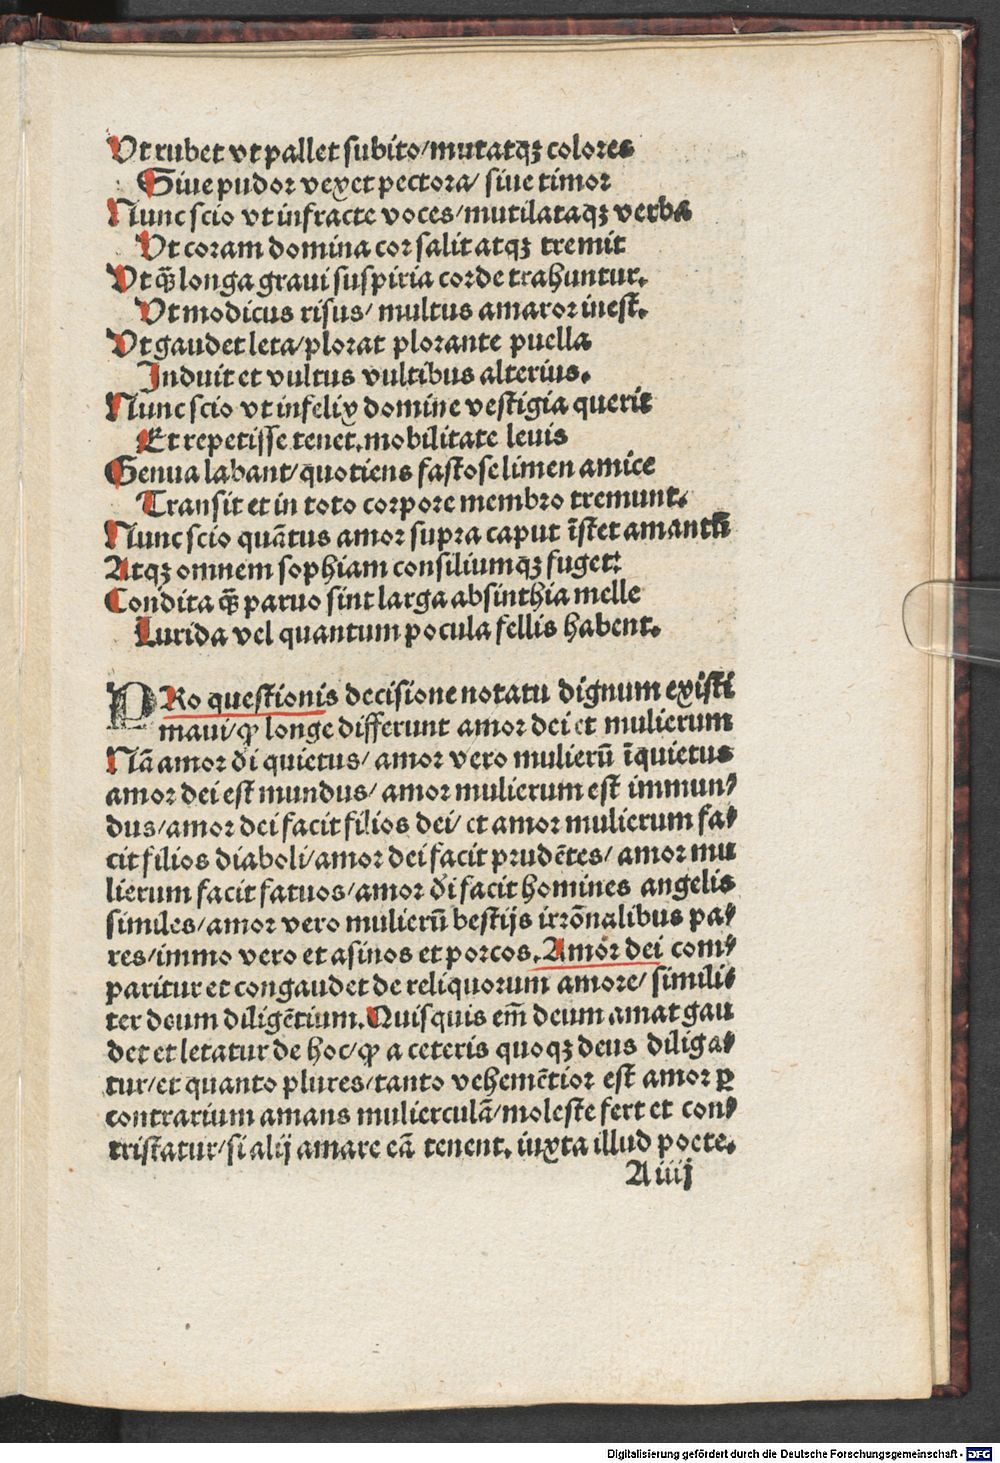 Ut rubet vt pallet subito/mutatqꝫ colores
Siue pudor vexet pectora/ siue timor
Nunc scio vt infracte voces/mutilataqꝫ verba
Ut coram domina cor salit atqꝫ tremit
Ut qꝫ̄ longa graui suspiria corde trahuntur.
Ut modicus risus/ multus amaror inest.
Ut gaudet leta/plorat plorante puella
Induit et vultus vultibus alterius.
Nunc scio vt infelix domine vestigia querit
Et repetisse tenet.mobilitate leuis
Genua labant/quotiens fastose limen amice
Transit et in toto corpore membro tremunt.
Nunc scio quātus amor supra caput īstet amantū
Atqꝫ omnem sophiam consiliumqꝫ fuget:
Condita qꝫ̄ paruo sint larga absinthia melle
Lurida vel quantum pocula fellis habent.
PRo questionis decisione notatu dignum existi
maui/ꝙ longe differunt amor dei et mulierum
Nā amor di quietus/ amor vero mulierū īquietus
amor dei est mundus/ amor mulierum est immun⸗
dus/amor dei facit filios dei/ et amor mulierum fa⸗
cit filios diaboli/amor dei facit prudētes/ amor mu
lierum facit fatuos/amor di facit homines angelis
similes/amor vero mulierū bestijs irrōnalibus pa⸗
res/immo vero et asinos et porcos.Amor dei com⸗
paritur et congaudet de reliquorum amore/ simili⸗
ter deum diligētium.Quisquis em̄ deum amat gau
det et letatur de hoc/ꝙ a ceteris quoqꝫ deus diliga⸗
tur/et quanto plures/tanto vehemētior est amor ꝑ
contrarium amans mulierculā/moleste fert et con⸗
tristatur/si alij amare eā tenent. iuxta illud poete.
A iiij
Digitalisierung gefördert durch die Deutsche Forschungsgemeinschaft - DFG